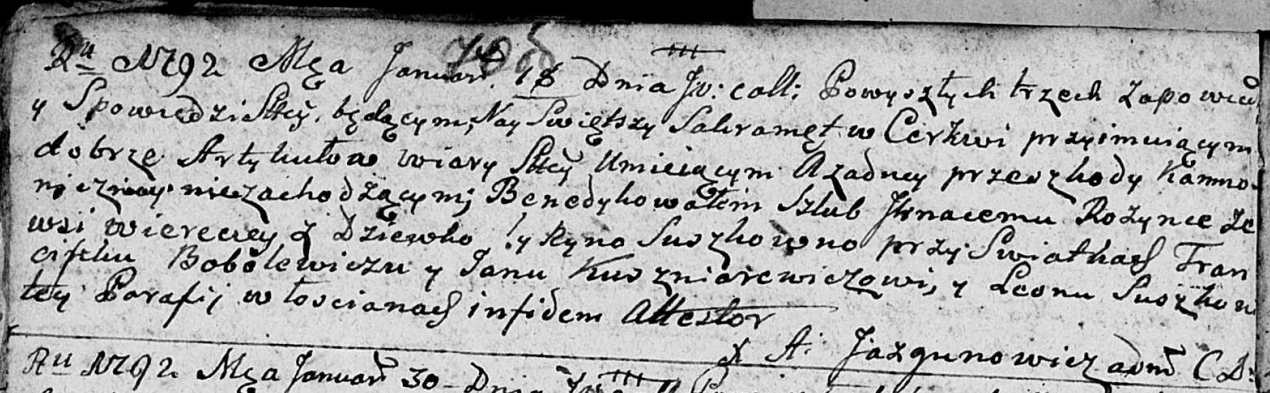 Ru 1792 Mca Januar. 18 Dnia Jv: call: Powyszłych trzech zapowied
y Spowiedzi Stey będącym, Nay Swiętszy Sakramęt w Cerkwi przyimuiącym
dobrze Artykułow Wiary Stey Umieiącym A żadney przeszkody Kanno-
niczney niezachodzącymi Benedykowałem Szlub Jhnacemu Rożynce ze
wsi Wiereciey z Dziewko Suszkowno przy Swiatkach Fran
ciszku Bobolewiczu y Janu Kuszniarewiczowi, y Leonu Suszkow
tey Parafij włoscianach in fidem Attestor
X A: Jazgunowicz adm C D:
Ru 1792 Mca Januar 30 Dnia